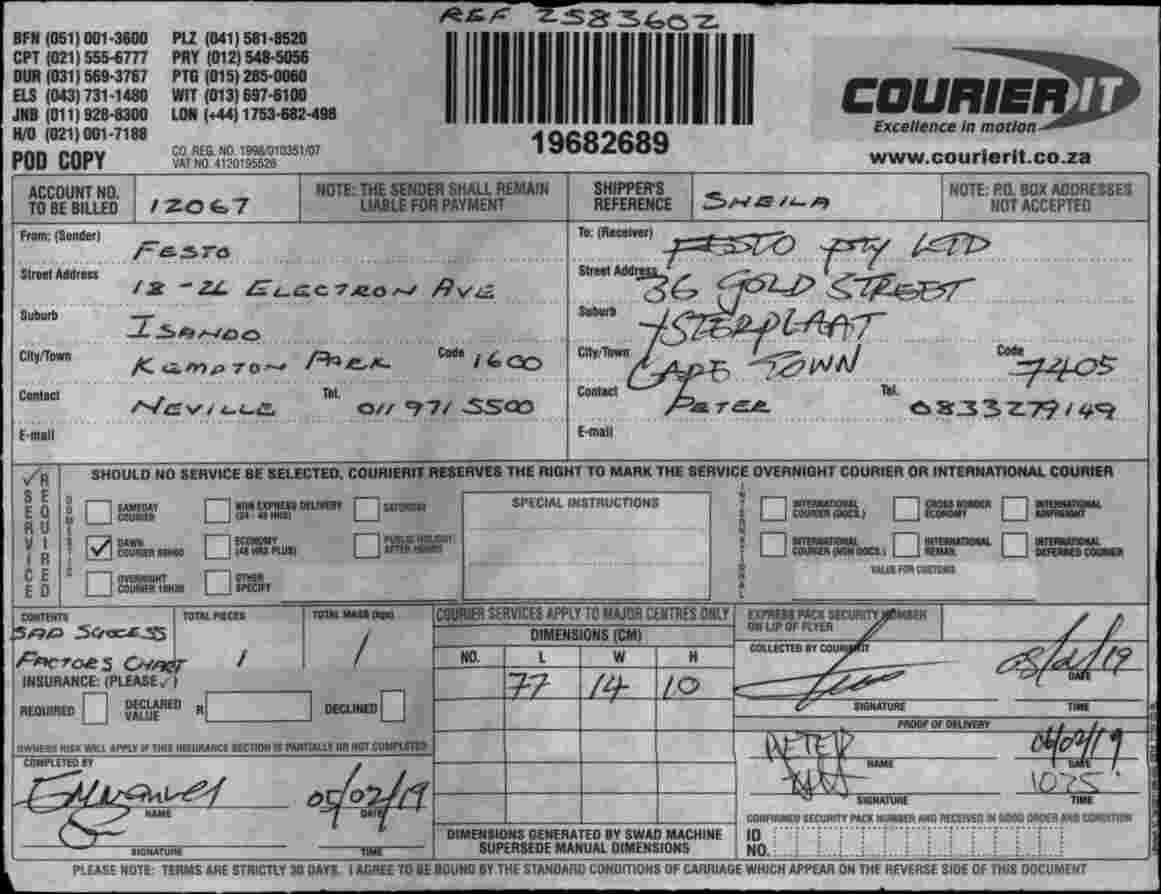 REF 2583602
BFN (051) 001-3600 PLZ (041) 581-8520
CPT (021) 555-6777 PRY (012) 548-5056
DUR (031) 569-3767 PTG (015) 285-0060
ELS (043) 731-1480 WIT (013) 697-6100
JNB (011) 928-8300 LON (+44) 1753-682-498
H/O (021) 001-7188
POD COPY
CO. REG. NO. 1998/010351/07
VAT NO. 4120195526
19682689
COURIER IT
Excellence in motion
www.courierit.co.za
ACCOUNT NO. TO BE BILLED 12067
NOTE: THE SENDER SHALL REMAIN LIABLE FOR PAYMENT
SHIPPER'S REFERENCE SHEILA
NOTE: P.O. BOX ADDRESSES NOT ACCEPTED
From: (Sender) FESTO
Street Address 18-26 ELECTRON AVE
Suburb ISANDO
City/Town KEMPTON PARK Code 1600
Contact NEVILLE Tel. 011 971 5500
E-mail
To: (Receiver) FESTO PTY LTD
Street Address 36 GOLD STREET
Suburb YSTERPLAAT
City/Town CAPE TOWN Code 7405
Contact PETER Tel. 0833279149
E-mail
✓ SERVICE REQUIRED
SHOULD NO SERVICE BE SELECTED, COURIERIT RESERVES THE RIGHT TO MARK THE SERVICE OVERNIGHT COURIER OR INTERNATIONAL COURIER
DOMESTIC
SAMEDAY COURIER
NON EXPRESS DELIVERY (24 - 48 HRS)
SATURDAY
✓ DAWN COURIER
ECONOMY (48 HRS PLUS)
PUBLIC HOLIDAY/ AFTER HOURS
OVERNIGHT COURIER 10H30
OTHER SPECIFY
SPECIAL INSTRUCTIONS
INTERNATIONAL
INTERNATIONAL COURIER (DOCS.)
CROSS BORDER ECONOMY
INTERNATIONAL AIRFREIGHT
INTERNATIONAL COURIER (NON DOCS.)
INTERNATIONAL REMAIL
INTERNATIONAL DEFERRED COURIER
VALUE FOR CUSTOMS
CONTENTS
SAD SUCCESS
FACTORS CHART
TOTAL PIECES 1
TOTAL MASS (kgs) 1
INSURANCE: (PLEASE ✓)
REQUIRED
DECLARED VALUE R
DECLINED
OWNERS RISK WILL APPLY IF THIS INSURANCE SECTION IS PARTIALLY OR NOT COMPLETED
COMPLETED BY
Emmanuel 05/02/19
NAME DATE
SIGNATURE TIME
COURIER SERVICES APPLY TO MAJOR CENTRES ONLY
DIMENSIONS (CM)
NO. L W H
77 14 10
DIMENSIONS GENERATED BY SWAD MACHINE SUPERSEDE MANUAL DIMENSIONS
EXPRESS PACK SECURITY NUMBER ON LIP OF FLYER
COLLECTED BY COURIERIT
DATE
SIGNATURE TIME
PROOF OF DELIVERY
PETER 06/02/19
NAME DATE
1025
SIGNATURE TIME
CONFIRMED SECURITY PACK NUMBER AND RECEIVED IN GOOD ORDER AND CONDITION
ID NO.
PLEASE NOTE: TERMS ARE STRICTLY 30 DAYS. I AGREE TO BE BOUND BY THE STANDARD CONDITIONS OF CARRIAGE WHICH APPEAR ON THE REVERSE SIDE OF THIS DOCUMENT